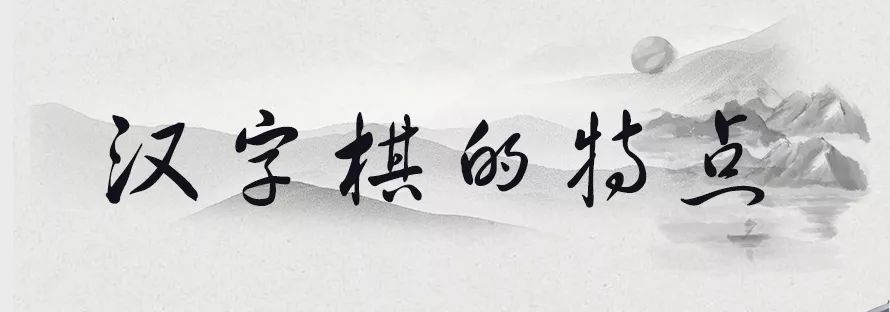 汉字棋的特点